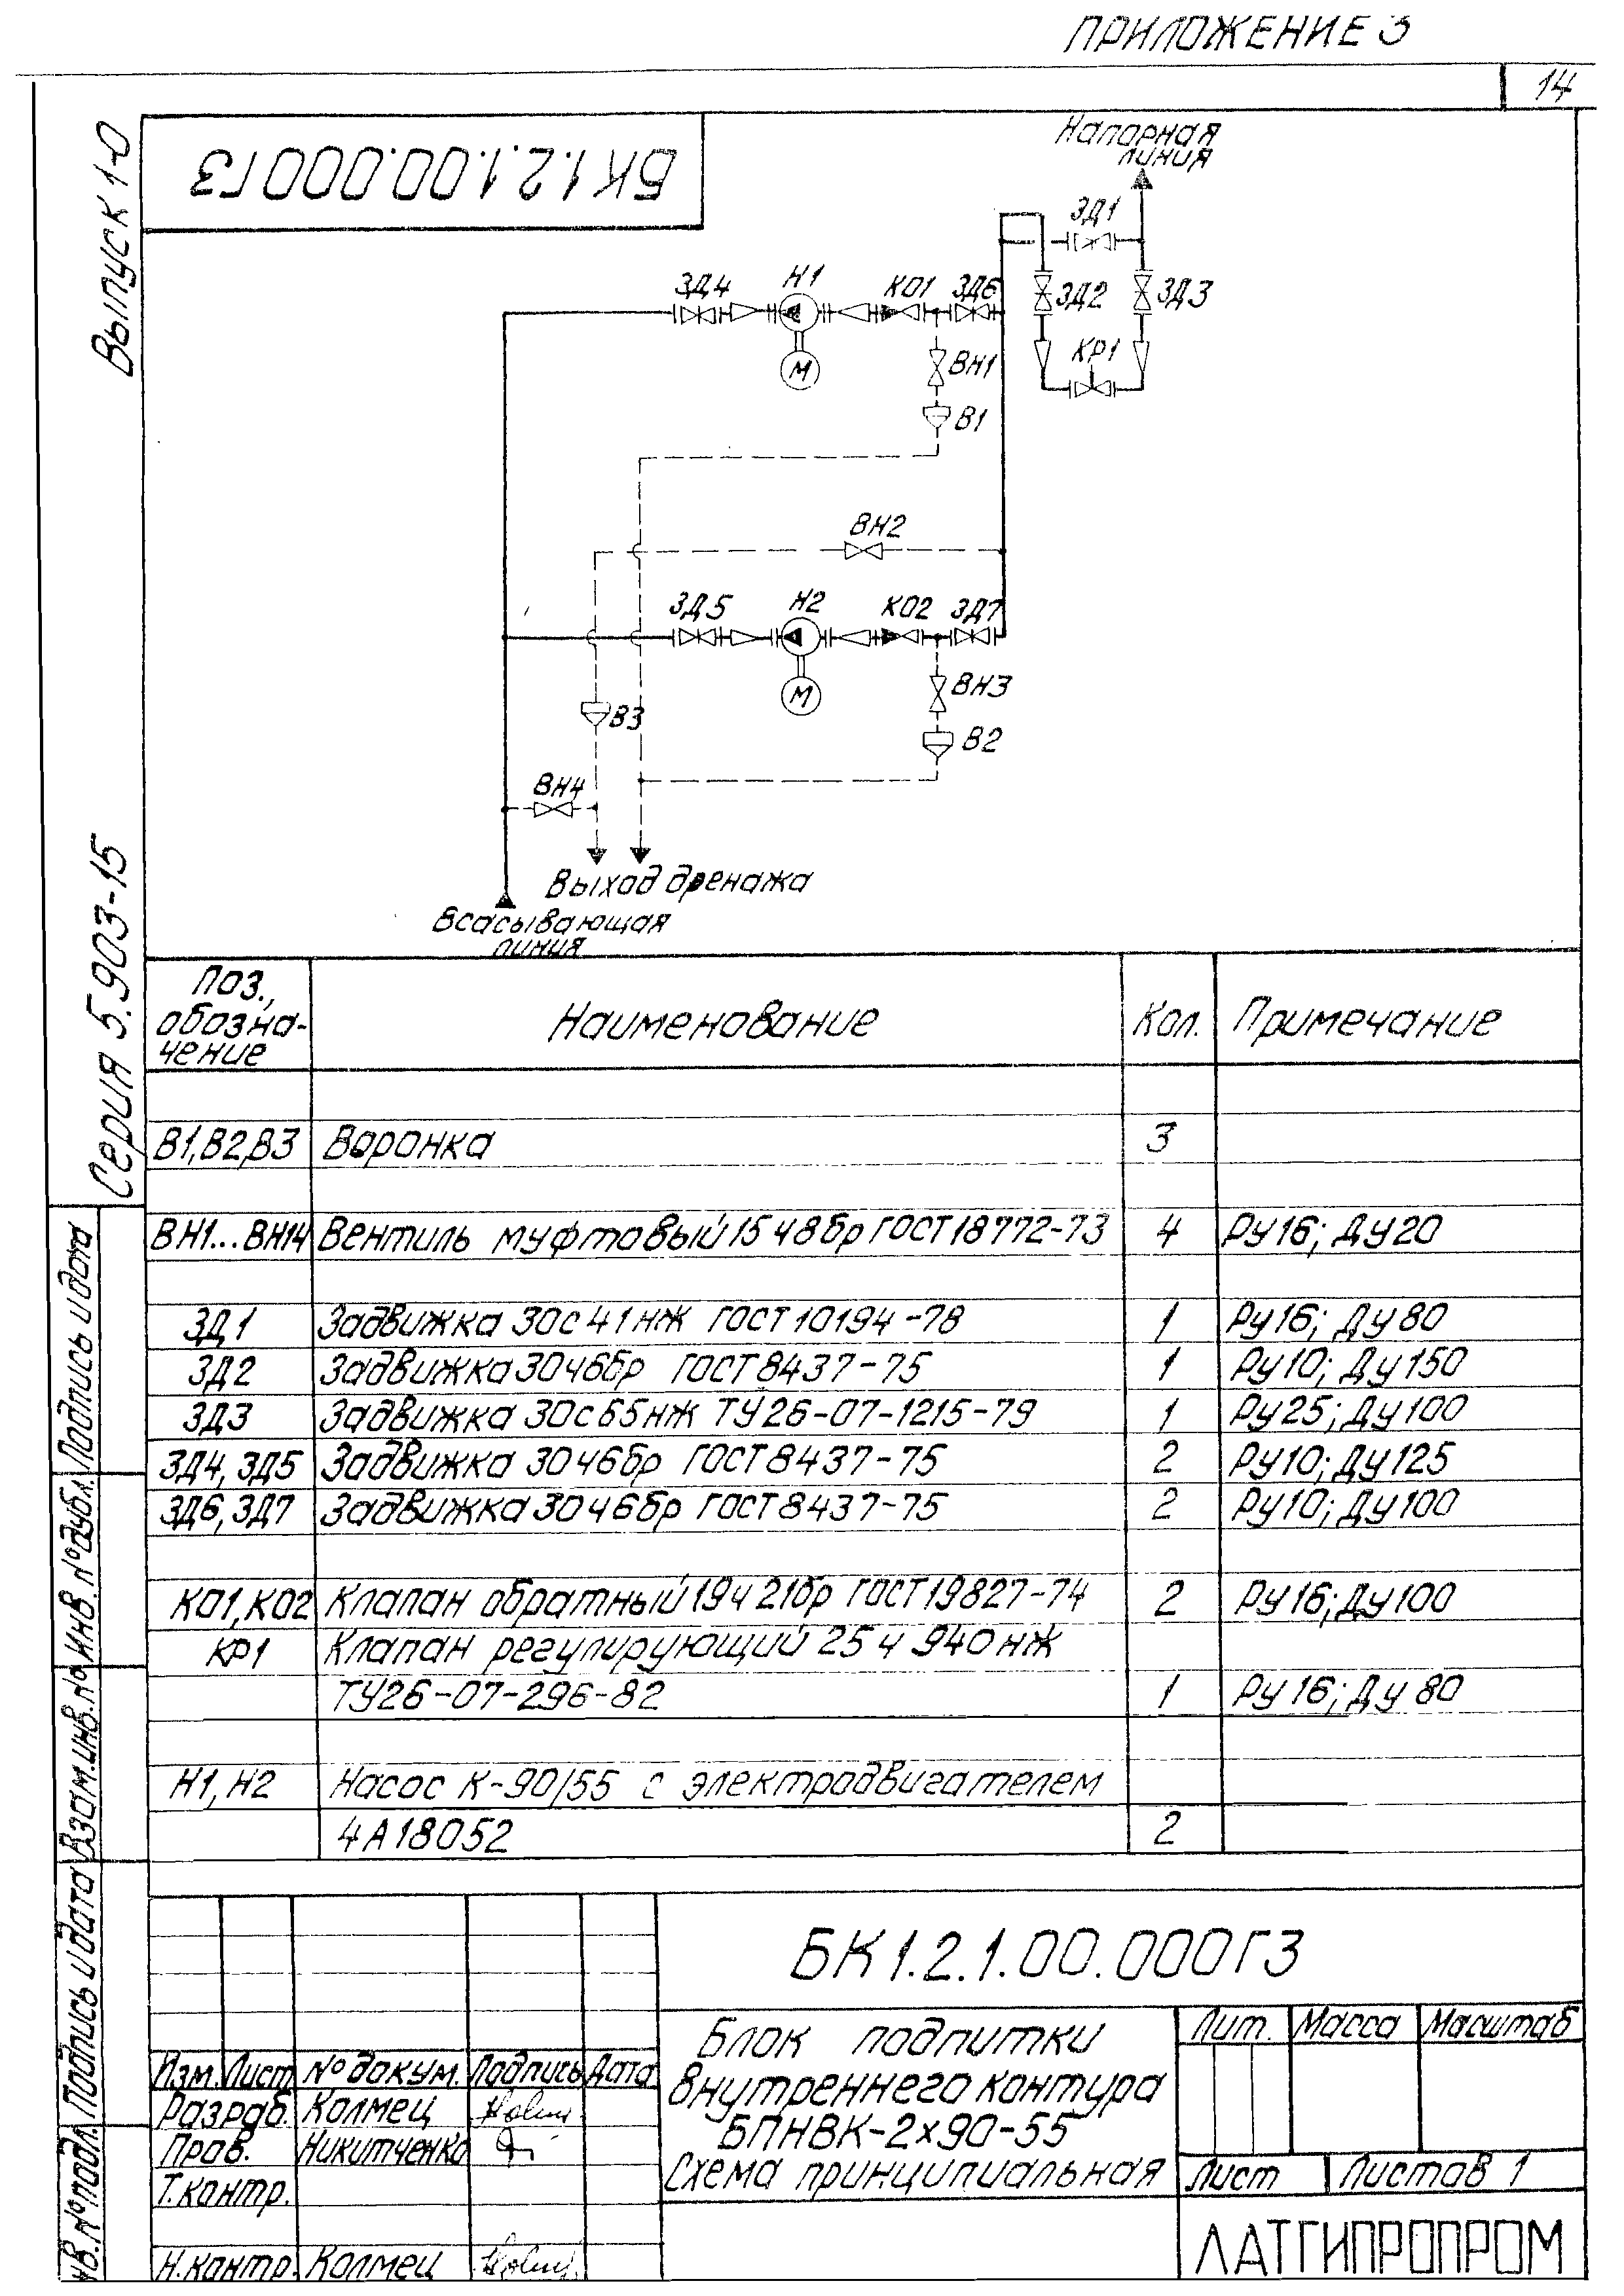 ПРИЛОЖЕНИЕ 3
14
Выпуск 1-0
БК 1.2.1.00.000 ГЗ
Напорная
линия
ЗД1
ЗД2
ЗД3
КР1
ЗД4
Н1
КО1
ЗД6
М
ВН1
В1
ВН2
ЗД5
Н2
КО2
ЗД7
М
ВН3
В2
В3
ВН4
Выход дренажа
Всасывающая
линия
Серия 5.903-15
Поз.,
обозна-
чение
Наименование
Кол.
Примечание
В1,В2,В3 Воронка 3
ВН1...ВН14 Вентиль муфтовый 15ч8бр ГОСТ 18772-73 4 Ру16; Ду20
ЗД1 Задвижка 30с41нж ГОСТ 10194-78 1 Ру16; Ду80
ЗД2 Задвижка 30ч6бр ГОСТ 8437-75 1 Ру10; Ду150
ЗД3 Задвижка 30с65нж ТУ26-07-1215-79 1 Ру25; Ду100
ЗД4, ЗД5 Задвижка 30ч6бр ГОСТ 8437-75 2 Ру10; Ду125
ЗД6, ЗД7 Задвижка 30ч6бр ГОСТ 8437-75 2 Ру10; Ду100
КО1, КО2 Клапан обратный 19ч21бр ГОСТ 19827-74 2 Ру16; Ду100
КР1 Клапан регулирующий 25ч940нж
ТУ26-07-296-82 1 Ру16; Ду80
Н1, Н2 Насос К-90/55 с электродвигателем
4А180S2 2
Подпись и дата
Инв. № дубл.
Взам. инв. №
Подпись и дата
нв. № подл.
БК 1.2.1.00.000ГЗ
Изм. Лист № докум. Подпись Дата
Разраб. Колмец
Пров. Никитченко
Т.контр.
Н.контр. Колмец
Блок подпитки
внутреннего контура
БПНВК-2х90-55
Схема принципиальная
Лит. Масса Масштаб
Лист Листов 1
ЛАТГИПРОПРОМ